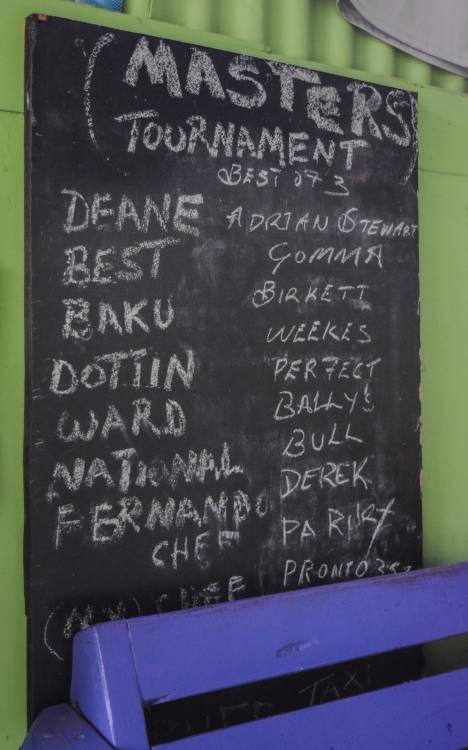 (MASTERS)
TOURNAMENT
BEST OF 3
DEANE ADRIAN STEWART
BEST GOMMA
BAKU BIRKETT
DOTTIN WEEKES
WARD PERFECT
NATIONAL BALLY'S
FERNANDO BULL
CHEF DEREK
PARIURY
PRONTO
CHEF
TAXI